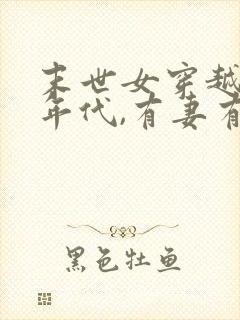 末世女穿越
年代,有妻有
黑色牡鱼